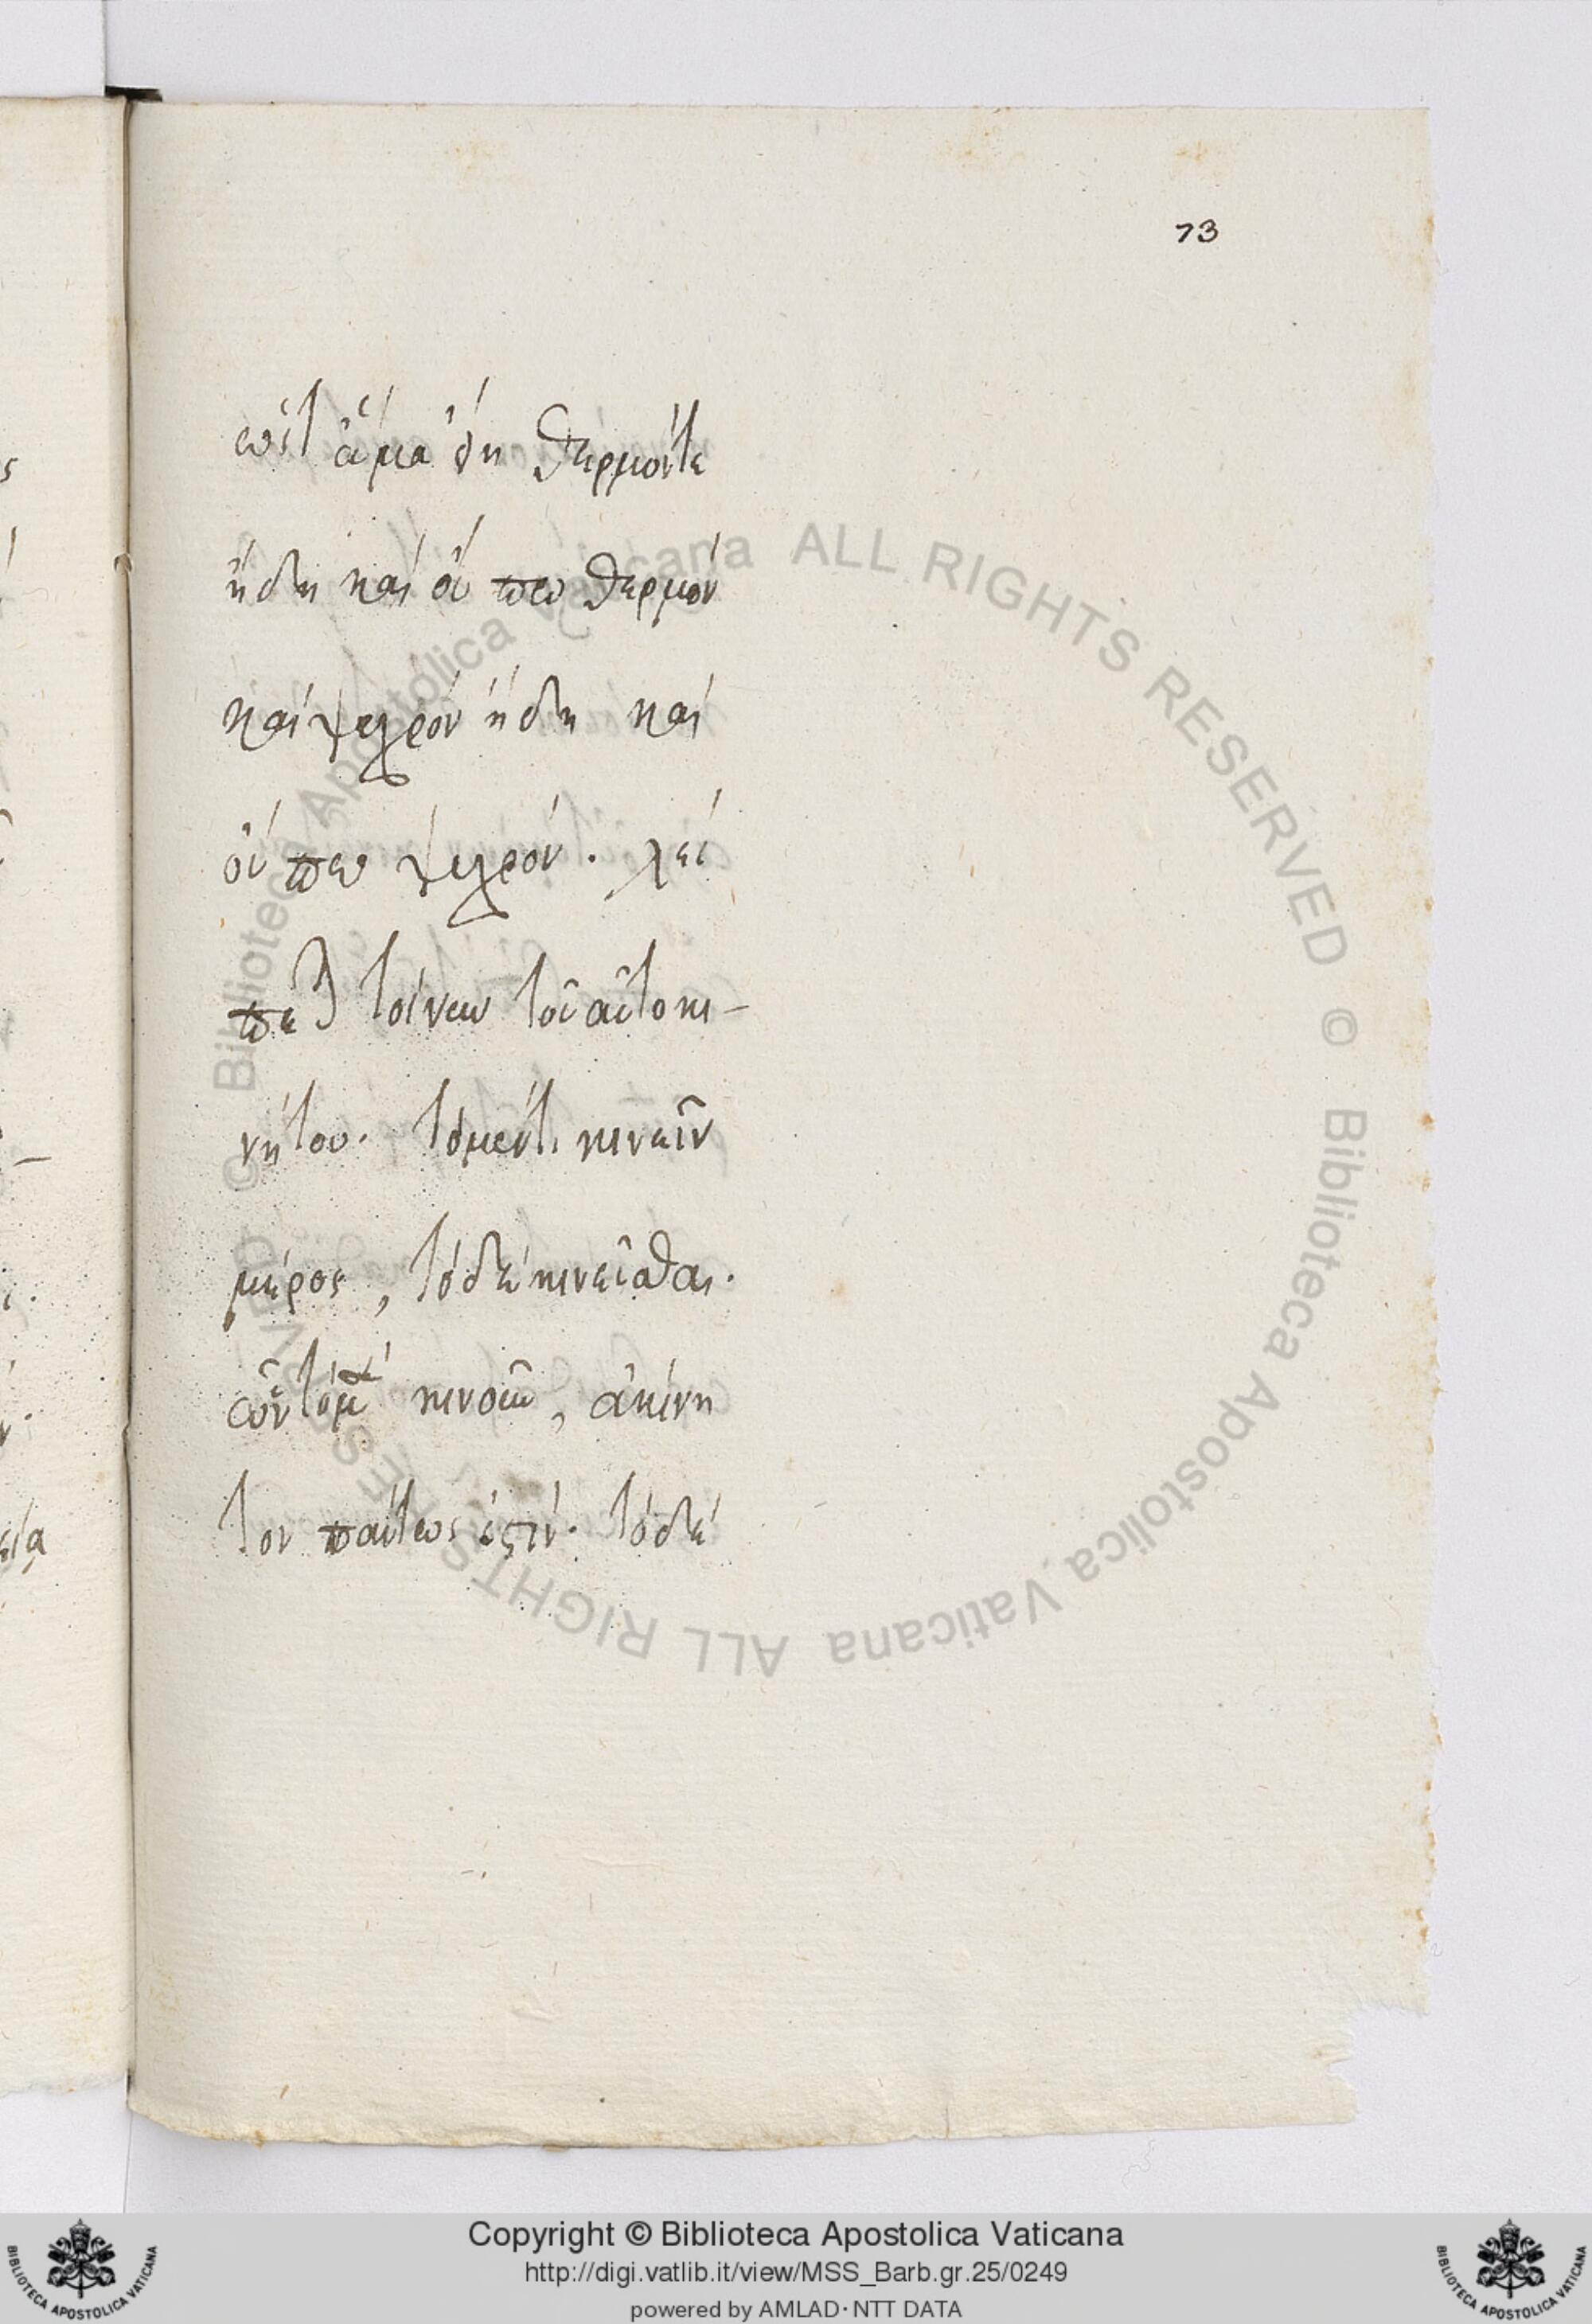 73
ἅμα δὴ θερμόντε
ἤδη καὶ οὔπω θερμόν
καὶ ψυχρόν ἤδη καὶ
οὔπω ψυχρόν. λεί
πεται τοίνυν τοῦ αὐτοκι-
νήτου. τὸ μέν τι κινεῖν
μέρος, τὸ δὲ κινεῖσθαι.
κινοῦν, ἀκίνη
τον πάντως ἐστίν. τὸ δέ
© Biblioteca Apostolica Vaticana ALL RIGHTS RESERVED © Biblioteca Apostolica Vaticana ALL RIGHTS RESERVED
Copyright © Biblioteca Apostolica Vaticana
http://digi.vatlib.it/view/MSS_Barb.gr.25/0249
powered by AMLAD·NTT DATA
BIBLIOTECA APOSTOLICA VATICANA
BIBLIOTECA APOSTOLICA VATICANA